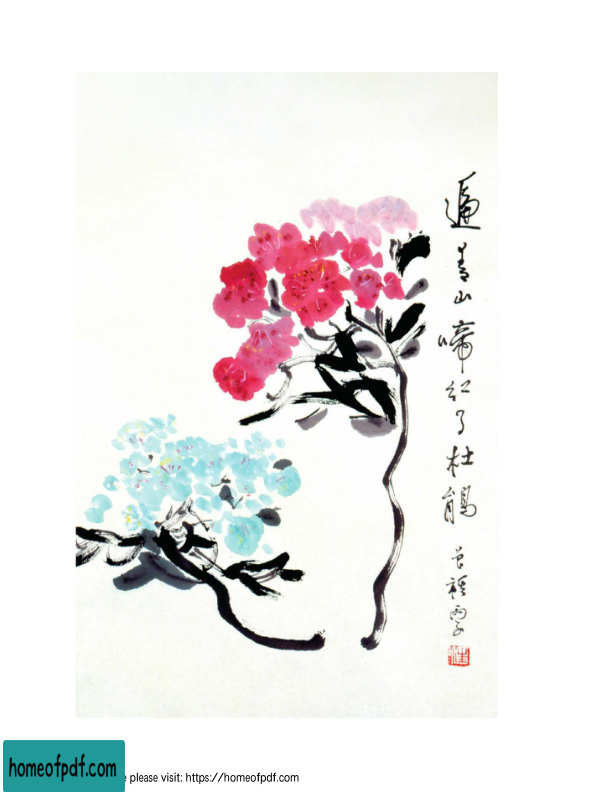 遍青山啼红了杜鹃
曾稚丙子
homeofpdf.com
e please visit: https://homeofpdf.com